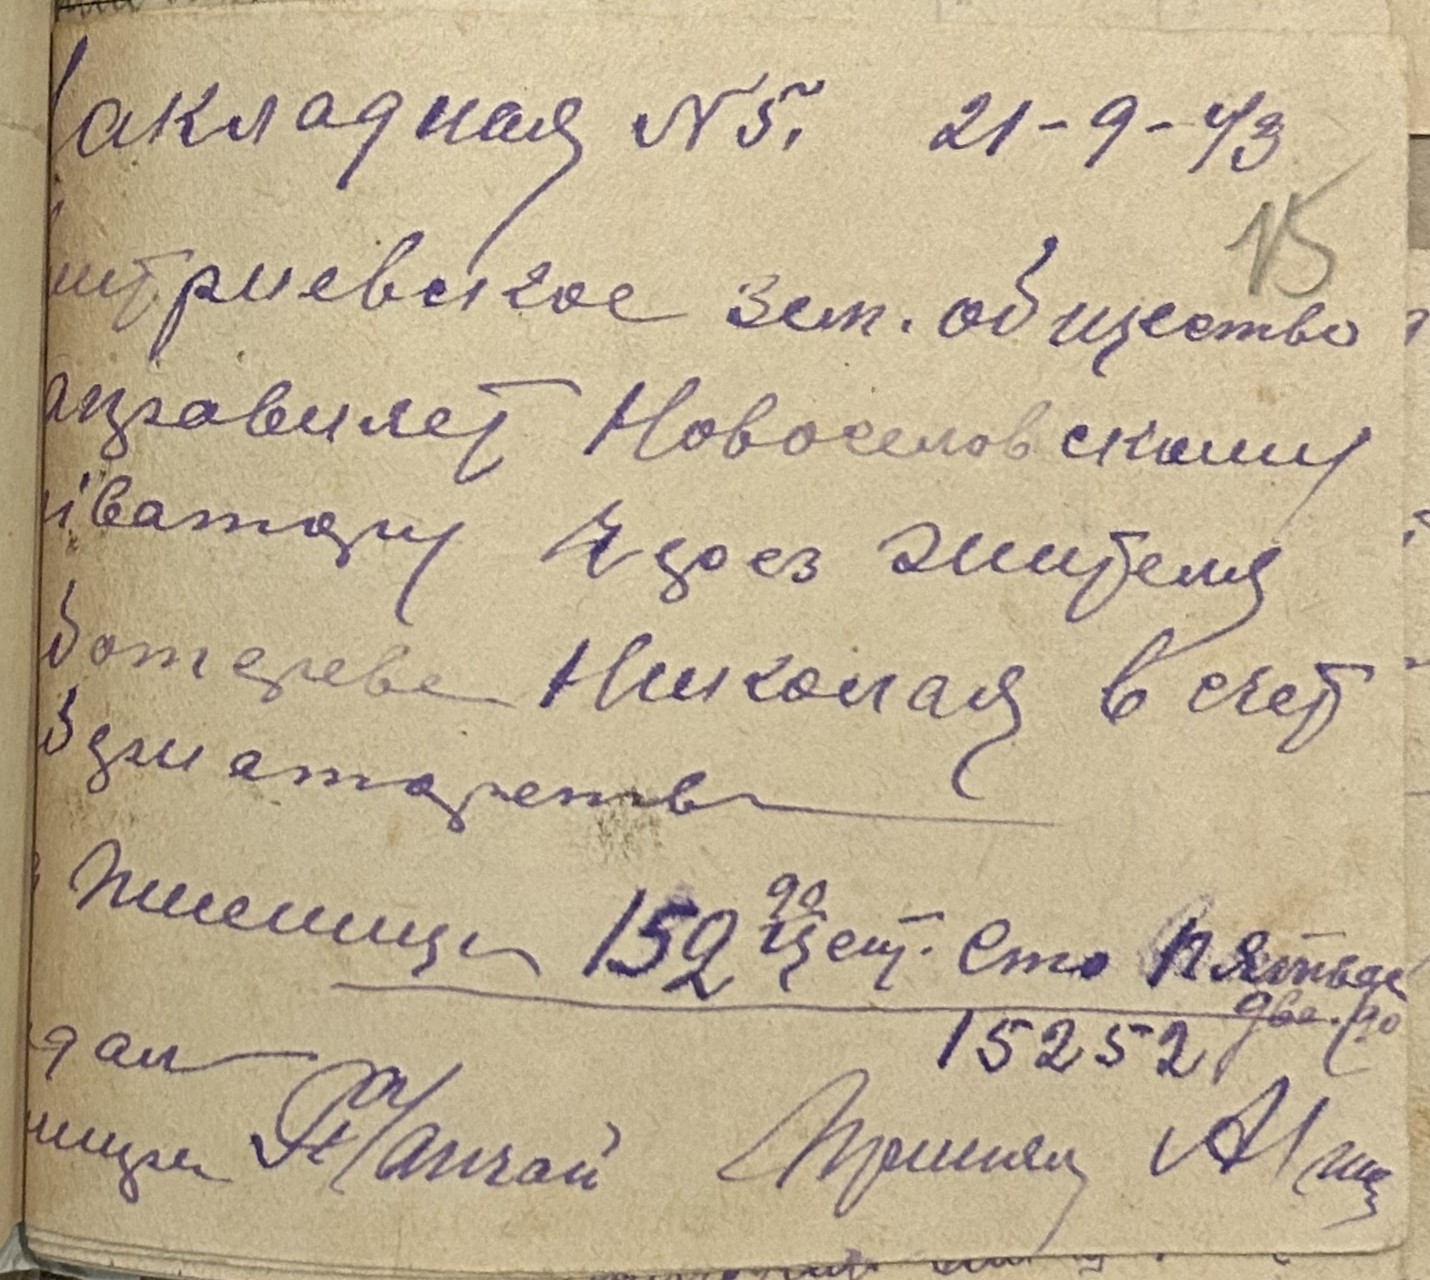 Накладная N 5. 21-9-43
15
митриевское зем. общество
аправиляет Новоселовскому
иватору через жителя
Ботарева Николая в счет
Зернапоставь
Пшеницы 152 90 цент. сто пятьдес
две. 90
15252
дал
ницы Принял